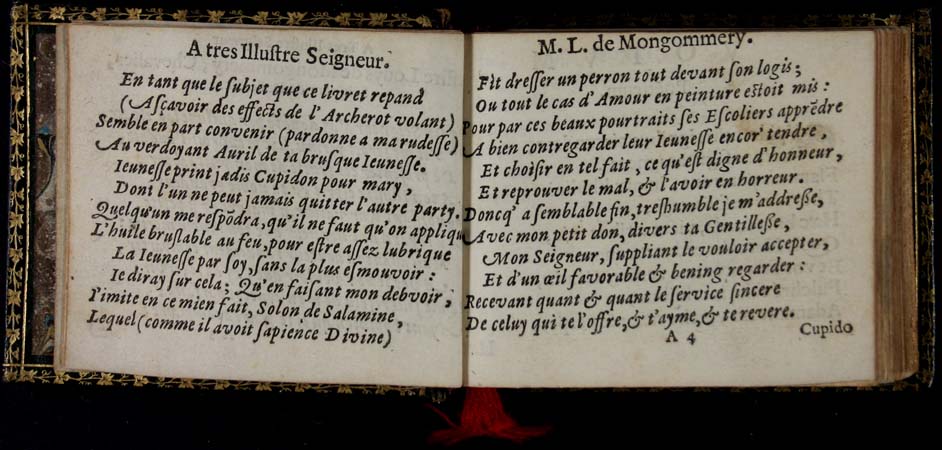 A tres Illuſtre Seigneur.
En tant que le ſubjet que ce livret repand
(Aſçavoir des effects de l'Archerot volant)
Semble en part convenir (pardonne a ma rudeſſe)
Au verdoyant Auril de ta bruſque Ieuneſſe.
Ieuneſſe print jadis Cupidon pour mary,
Dont l'un ne peut jamais quitter l'autre party.
Quelqu'un me reſpõdra, qu'il ne faut qu'on appliqu
L'huile bruſlable au feu, pour eſtre aſſez lubrique
La Ieuneſſe par ſoy, ſans la plus eſmouvoir:
Ie diray ſur cela; Qu'en faiſant mon debvoir,
I'imite en ce mien fait, Solon de Salamine,
Lequel (comme il avoit ſapience Divine)
M. L. de Mongommery.
Fit dreſſer un perron tout devant ſon logis;
Ou tout le cas d'Amour en peinture eſtoit mis:
Pour par ces beaux pourtraits ſes Eſcoliers apprẽdre
A bien contregarder leur Ieuneſſe encor' tendre,
Et choiſir en tel fait, ce qu'eſt digne d'honneur,
Et reprouver le mal, & l'avoir en horreur.
Doncq' a ſemblable fin, treſhumble je m'addreße,
Avec mon petit don, divers ta Gentilleße,
Mon Seigneur, ſuppliant le vouloir accepter,
Et d'un œil favorable & bening regarder:
Recevant quant & quant le ſervice ſincere
De celuy qui te l'offre, & t'ayme, & te revere.
A 4
Cupido